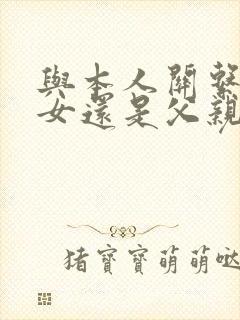 與本人關繫
女還是父親
猪寶寶萌萌哒